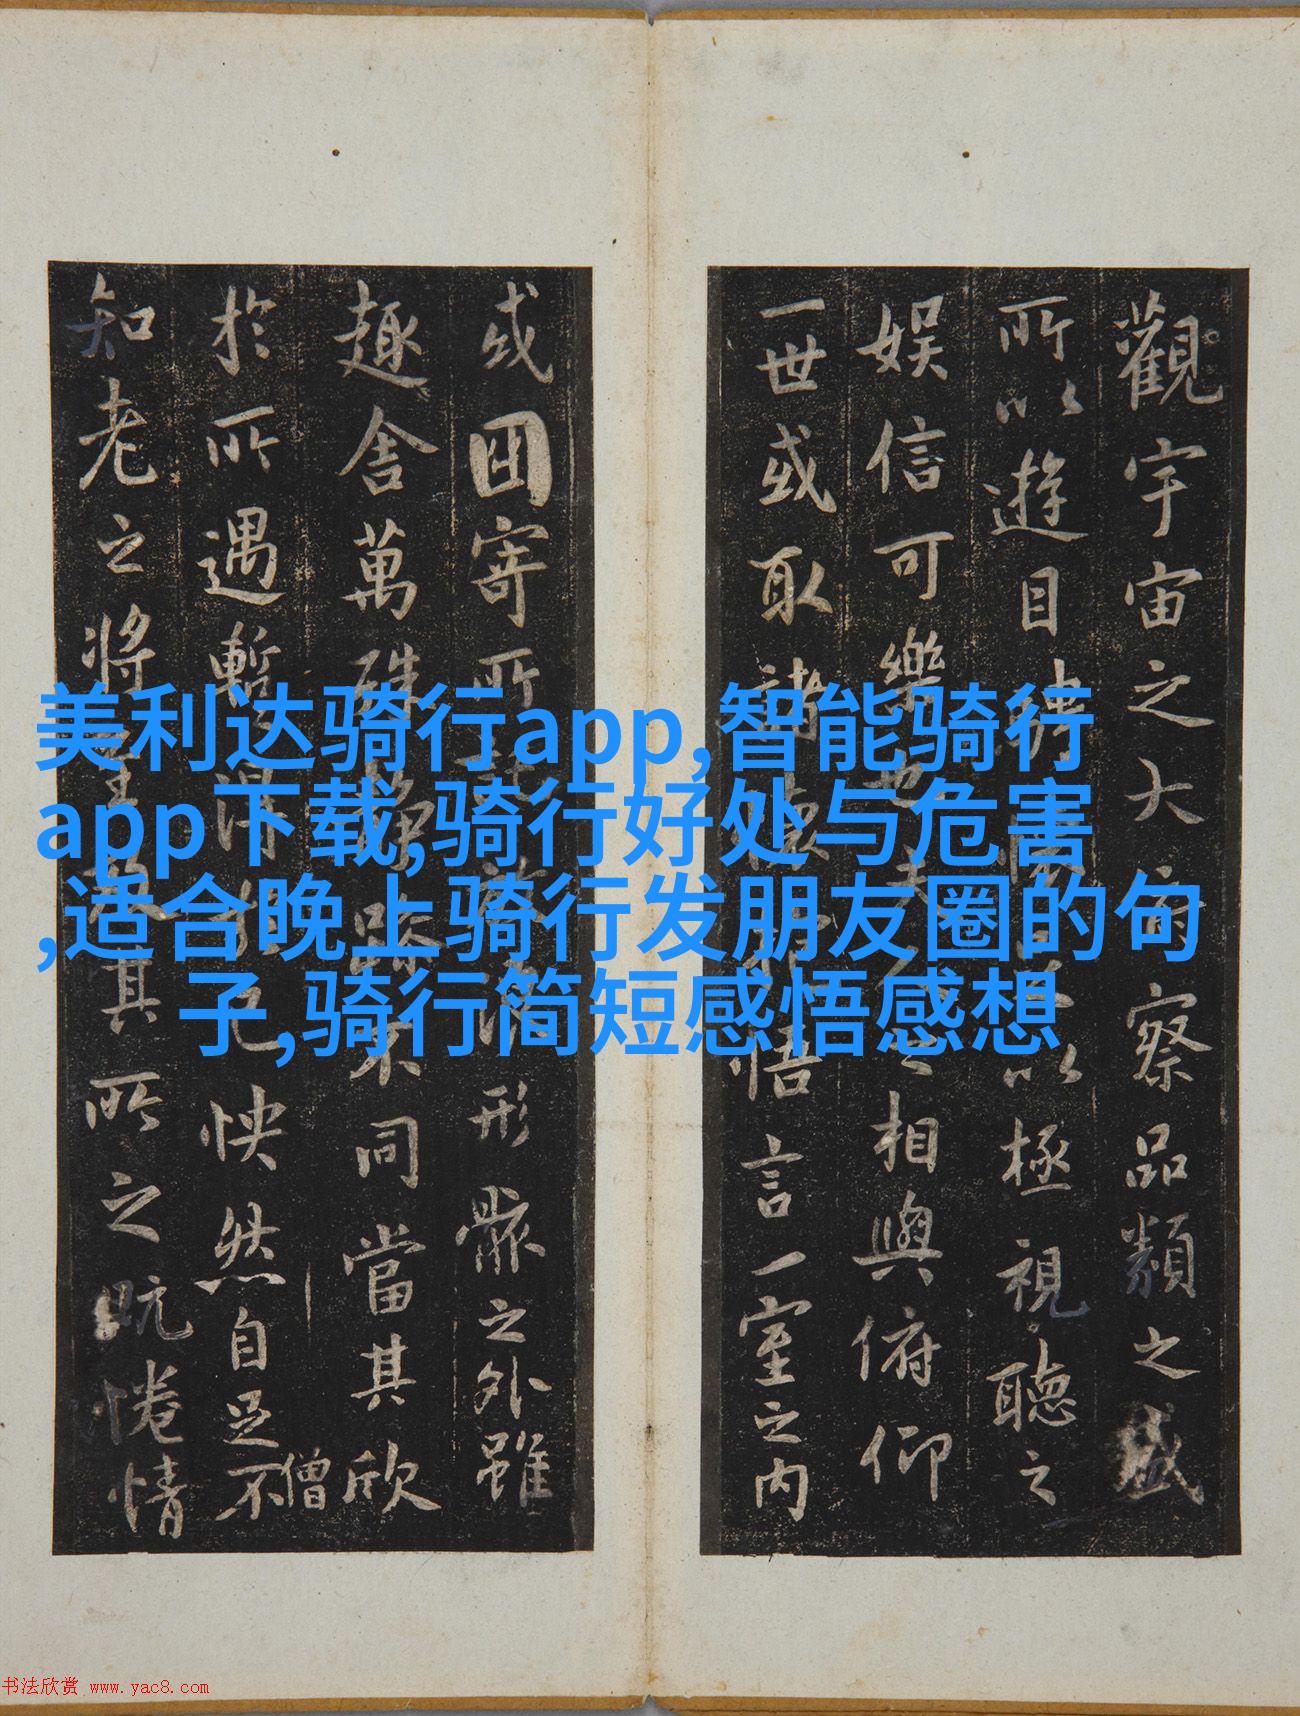 觀宇宙之大俯察品類之盛
所以遊目騁懷足以極視聽之
娛信可樂也夫人之相與俯仰
一世或取諸懷抱悟言一室之內
或因寄所託放浪形骸之外雖
趣舍萬殊靜躁不同當其欣
僧
於所遇暫得於己怏然自足不
知老之將至及其所之既惓情
美利达骑行app,智能骑行
app下载,骑行好处与危害
,适合晚上骑行发朋友圈的句
子,骑行简短感悟感想
书法欣赏 www.yac8.com